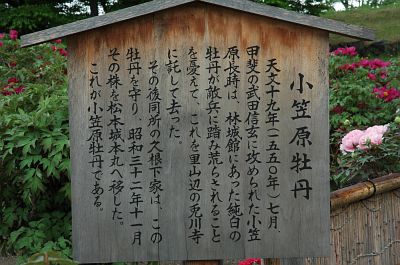 小笠原牡丹
天文十九年（一五五〇年）七月
甲斐の武田信玄に攻められた小笠
原長時は、林城館にあった純白の
牡丹が敵兵に踏み荒らされること
を憂えて、これを里山辺の兎川寺
に託して去った。
その後同所の久根下家は、この
牡丹を守り、昭和三十二年十一月
その株を松本城本丸へ移した。
これが小笠原牡丹である。